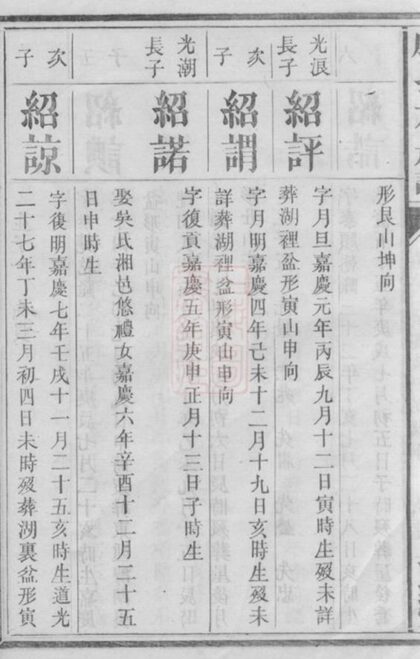 形艮山坤向
光浪長子
紹評
字月旦嘉慶元年丙辰九月十二日寅時生歿未詳
葬湖裡盆形寅山申向
次子
紹謂
字月明嘉慶四年己未十二月十九日亥時生歿未
詳葬湖裡盆形寅山申向
光潮長子
紹諾
字復貢嘉慶五年庚申正月十三日子時生
娶吳氏湘邑悠禮女嘉慶六年辛酉十二月三十五
日申時生
次子
紹諒
字復明嘉慶七年壬戌十一月二十五亥時生道光
二十七年丁未三月初四日未時歿葬湖裏盆形寅